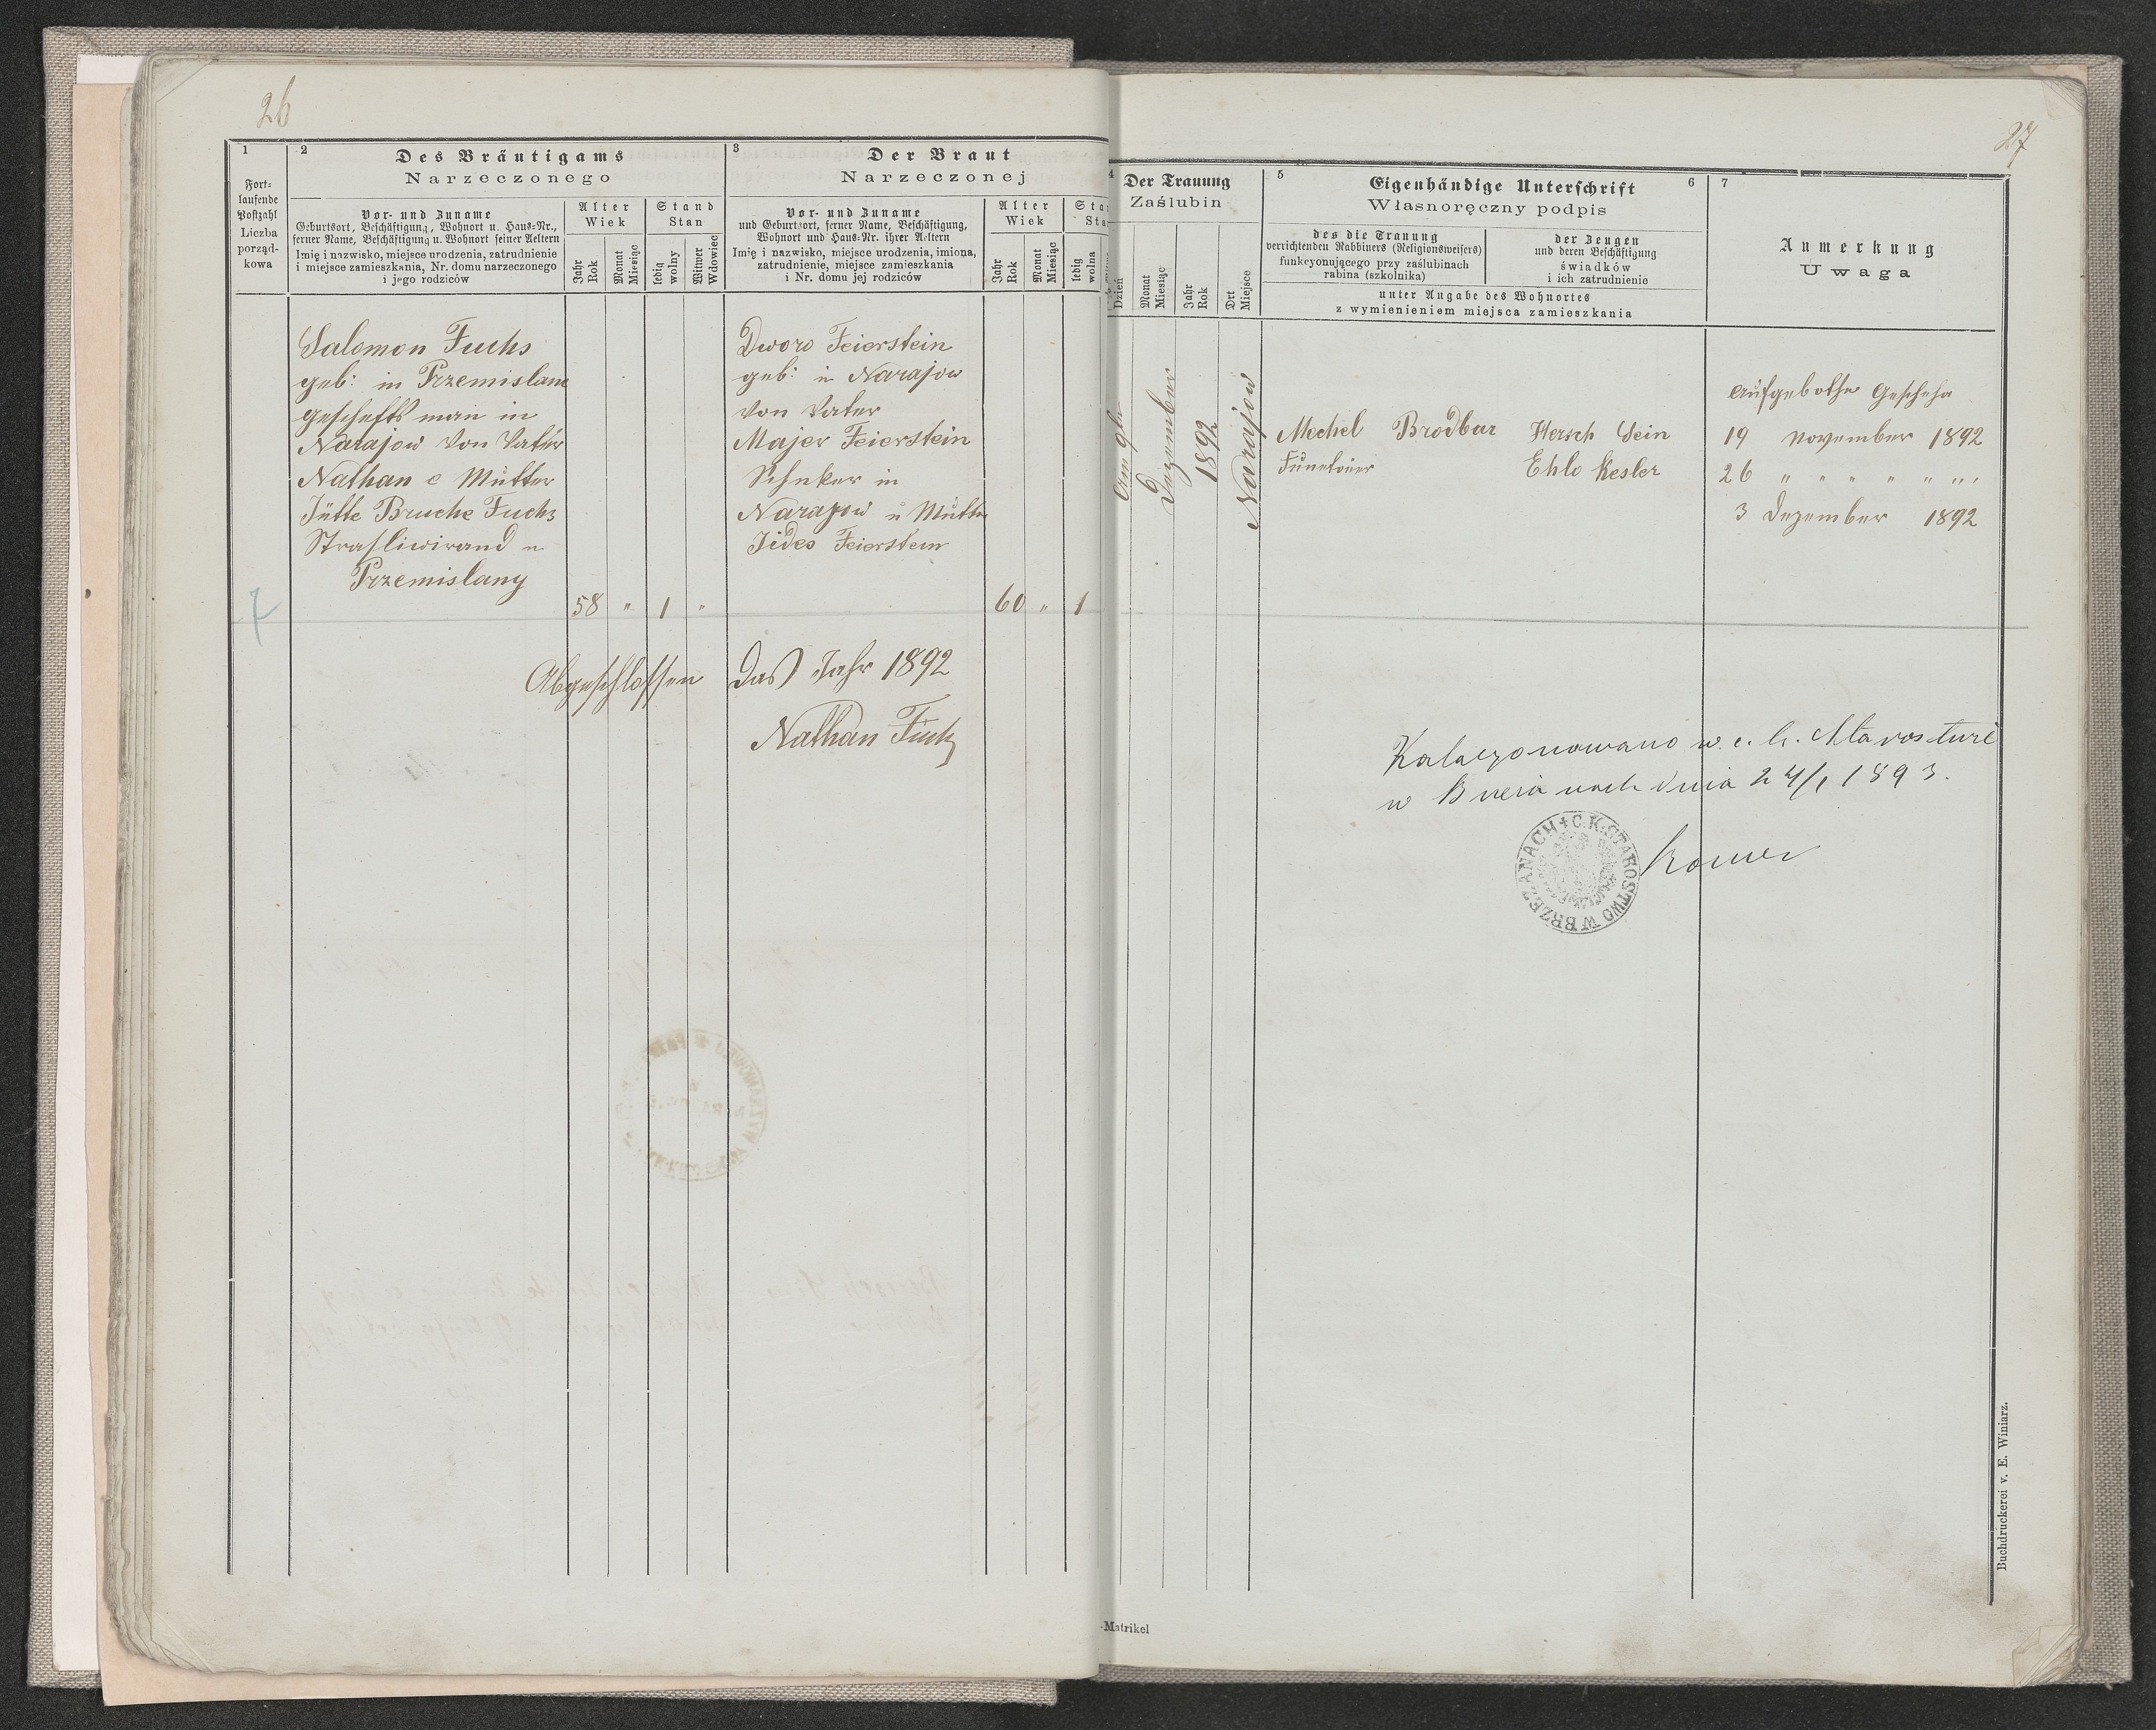 26
1
Fort-
laufende
Postzahl
Liczba
porząd-
kowa
2
Des Bräutigams
Narzeczonego
Vor- und Zuname
Geburtsort, Beschäftigung, Wohnort u. Haus-Nr.,
ferner Name, Beschäftigung u. Wohnort seiner Aeltern
Imię i nazwisko, miejsce urodzenia, zatrudnienie
i miejsce zamieszkania, Nr. domu narzeczonego
i jego rodziców
Alter
Wiek
Jahr
Rok
Monat
Miesiąc
Stand
Stan
ledig
wolny
Witwer
Wdowiec
3
Der Braut
Narzeczonej
Vor- und Zuname
und Geburtsort, ferner Name, Beschäftigung,
Wohnort und Haus-Nr. ihrer Aeltern
Imię i nazwisko, miejsce urodzenia, imiona,
zatrudnienie, miejsce zamieszkania
i Nr. domu jej rodziców
Alter
Wiek
Jahr
Rok
Monat
Miesiąc
Sta
Sta
ledig
wolna
Salomon Fuchs
geb: in Przemislane
geschefts man in
Narajow Von Vater
Nathan e Mutter
Jütte Bruche Fuchs
Przemislany
58 " 1 "
Dworo Feierstein
geb: in Narajow
von Vater
Majer Feierstein
Schnker in
Narajow u Mutter
Jides Feierstein
60 " 1
7
Abgeschlossen Das Jahr 1892
Nathan Fuchs
27
4
Der Trauung
Zaślubin
Dzień
Monat
Miesiąc
Jahr
Rok
Ort
Miejsce
5
Eigenhändige Unterschrift
6
Własnoręczny podpis
des die Trauung
verrichtenden Rabbiners (Religionsweisers)
funkcyonującego przy zaślubinach
rabina (szkolnika)
der Zeugen
und deren Beschäftigung
świadków
i ich zatrudnienie
unter Angabe des Wohnortes
z wymienieniem miejsca zamieszkania
7
Anmerkung
Uwaga
Dezember
1892
Narajow
Mechel Brodbar
Hersch Sein
Ehlo Kesler
19 november 1892
26 " " " " " " "
3 Dezember 1892
dnia 24/1 1893.
C.K. STAROSTWO W BRZEŻANACH
Buchdruckerei v. E. Winiarz.
-Matrikel